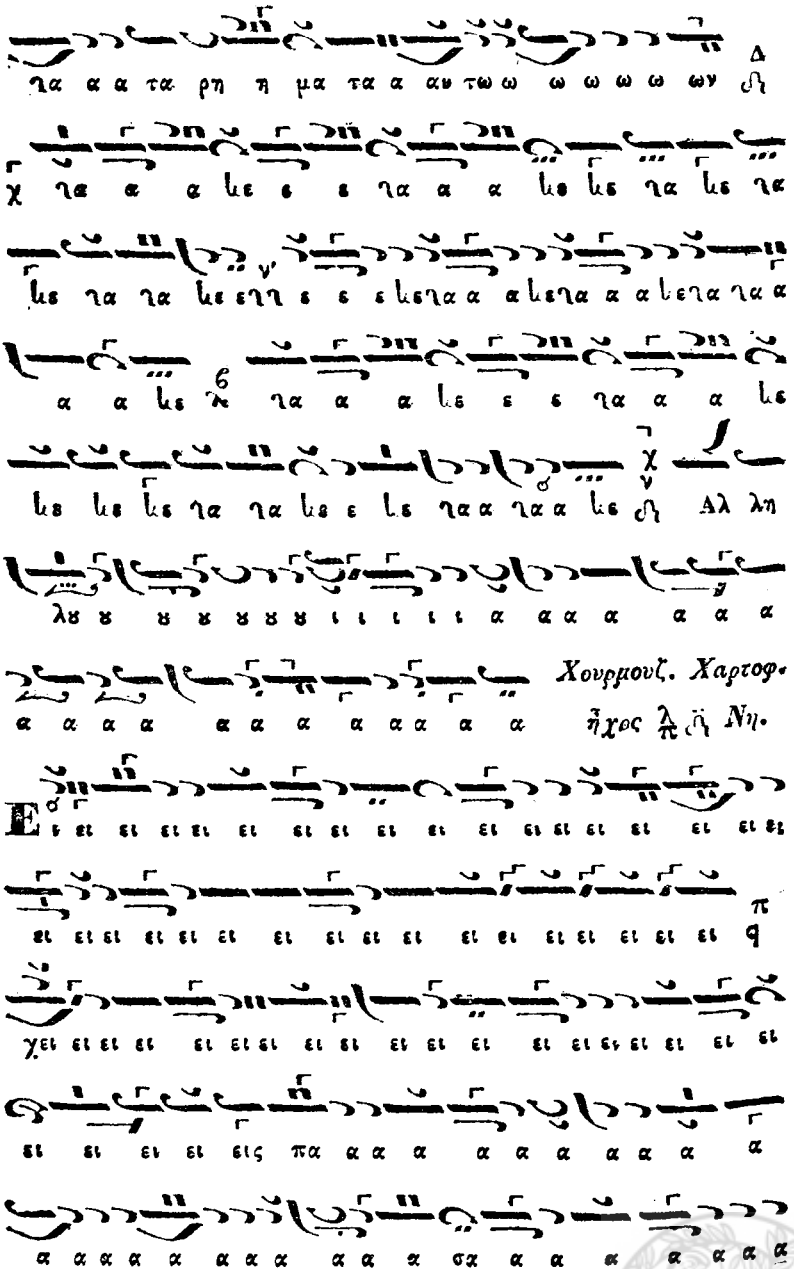 τα α α τα ρη η μα τα α αυ τω ω ω ω ω ω ων Δ
χ τα α α κε ε ε τα α α κε κε τα κε τα
κε τα τα κε ε ε ε ε κε τα α α κε τα α α κε τα τα α
α α κε τα α α κε ε ε τα α α κε
κε κε κε τα τα κε ε κε τα α τα α κε χ Αλ λη
λȣ ȣ ȣ ȣ ȣ ȣ ȣ ι ι ι ι ι α α α α α α α
α α α α α α α α α α α α α Χουρμουζ. Χαρτοφ.
ἦχος λ π Νη.
Ε ι ει ει ει ει ει ει ει ει ει ει ει ει ει ει ει ει ει
ει ει ει ει ει ει ει ει ει ει ει ει ει ει ει ει ει π q
χει ει ει ει ει ει ει ει ει ει ει ει ει ει ει ει ει ει ει
ει ει ει ει εις πα α α α α α α α α α α
α α α α α α α α α α α σα α α α α α α α